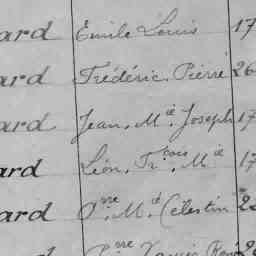 ard Emile Louis 17
ard Frédéric Pierre 26
ard Jean. Mie Joseph 17
ard Léon. Frçois Mie 17
ard Pre. M. Célestin 2